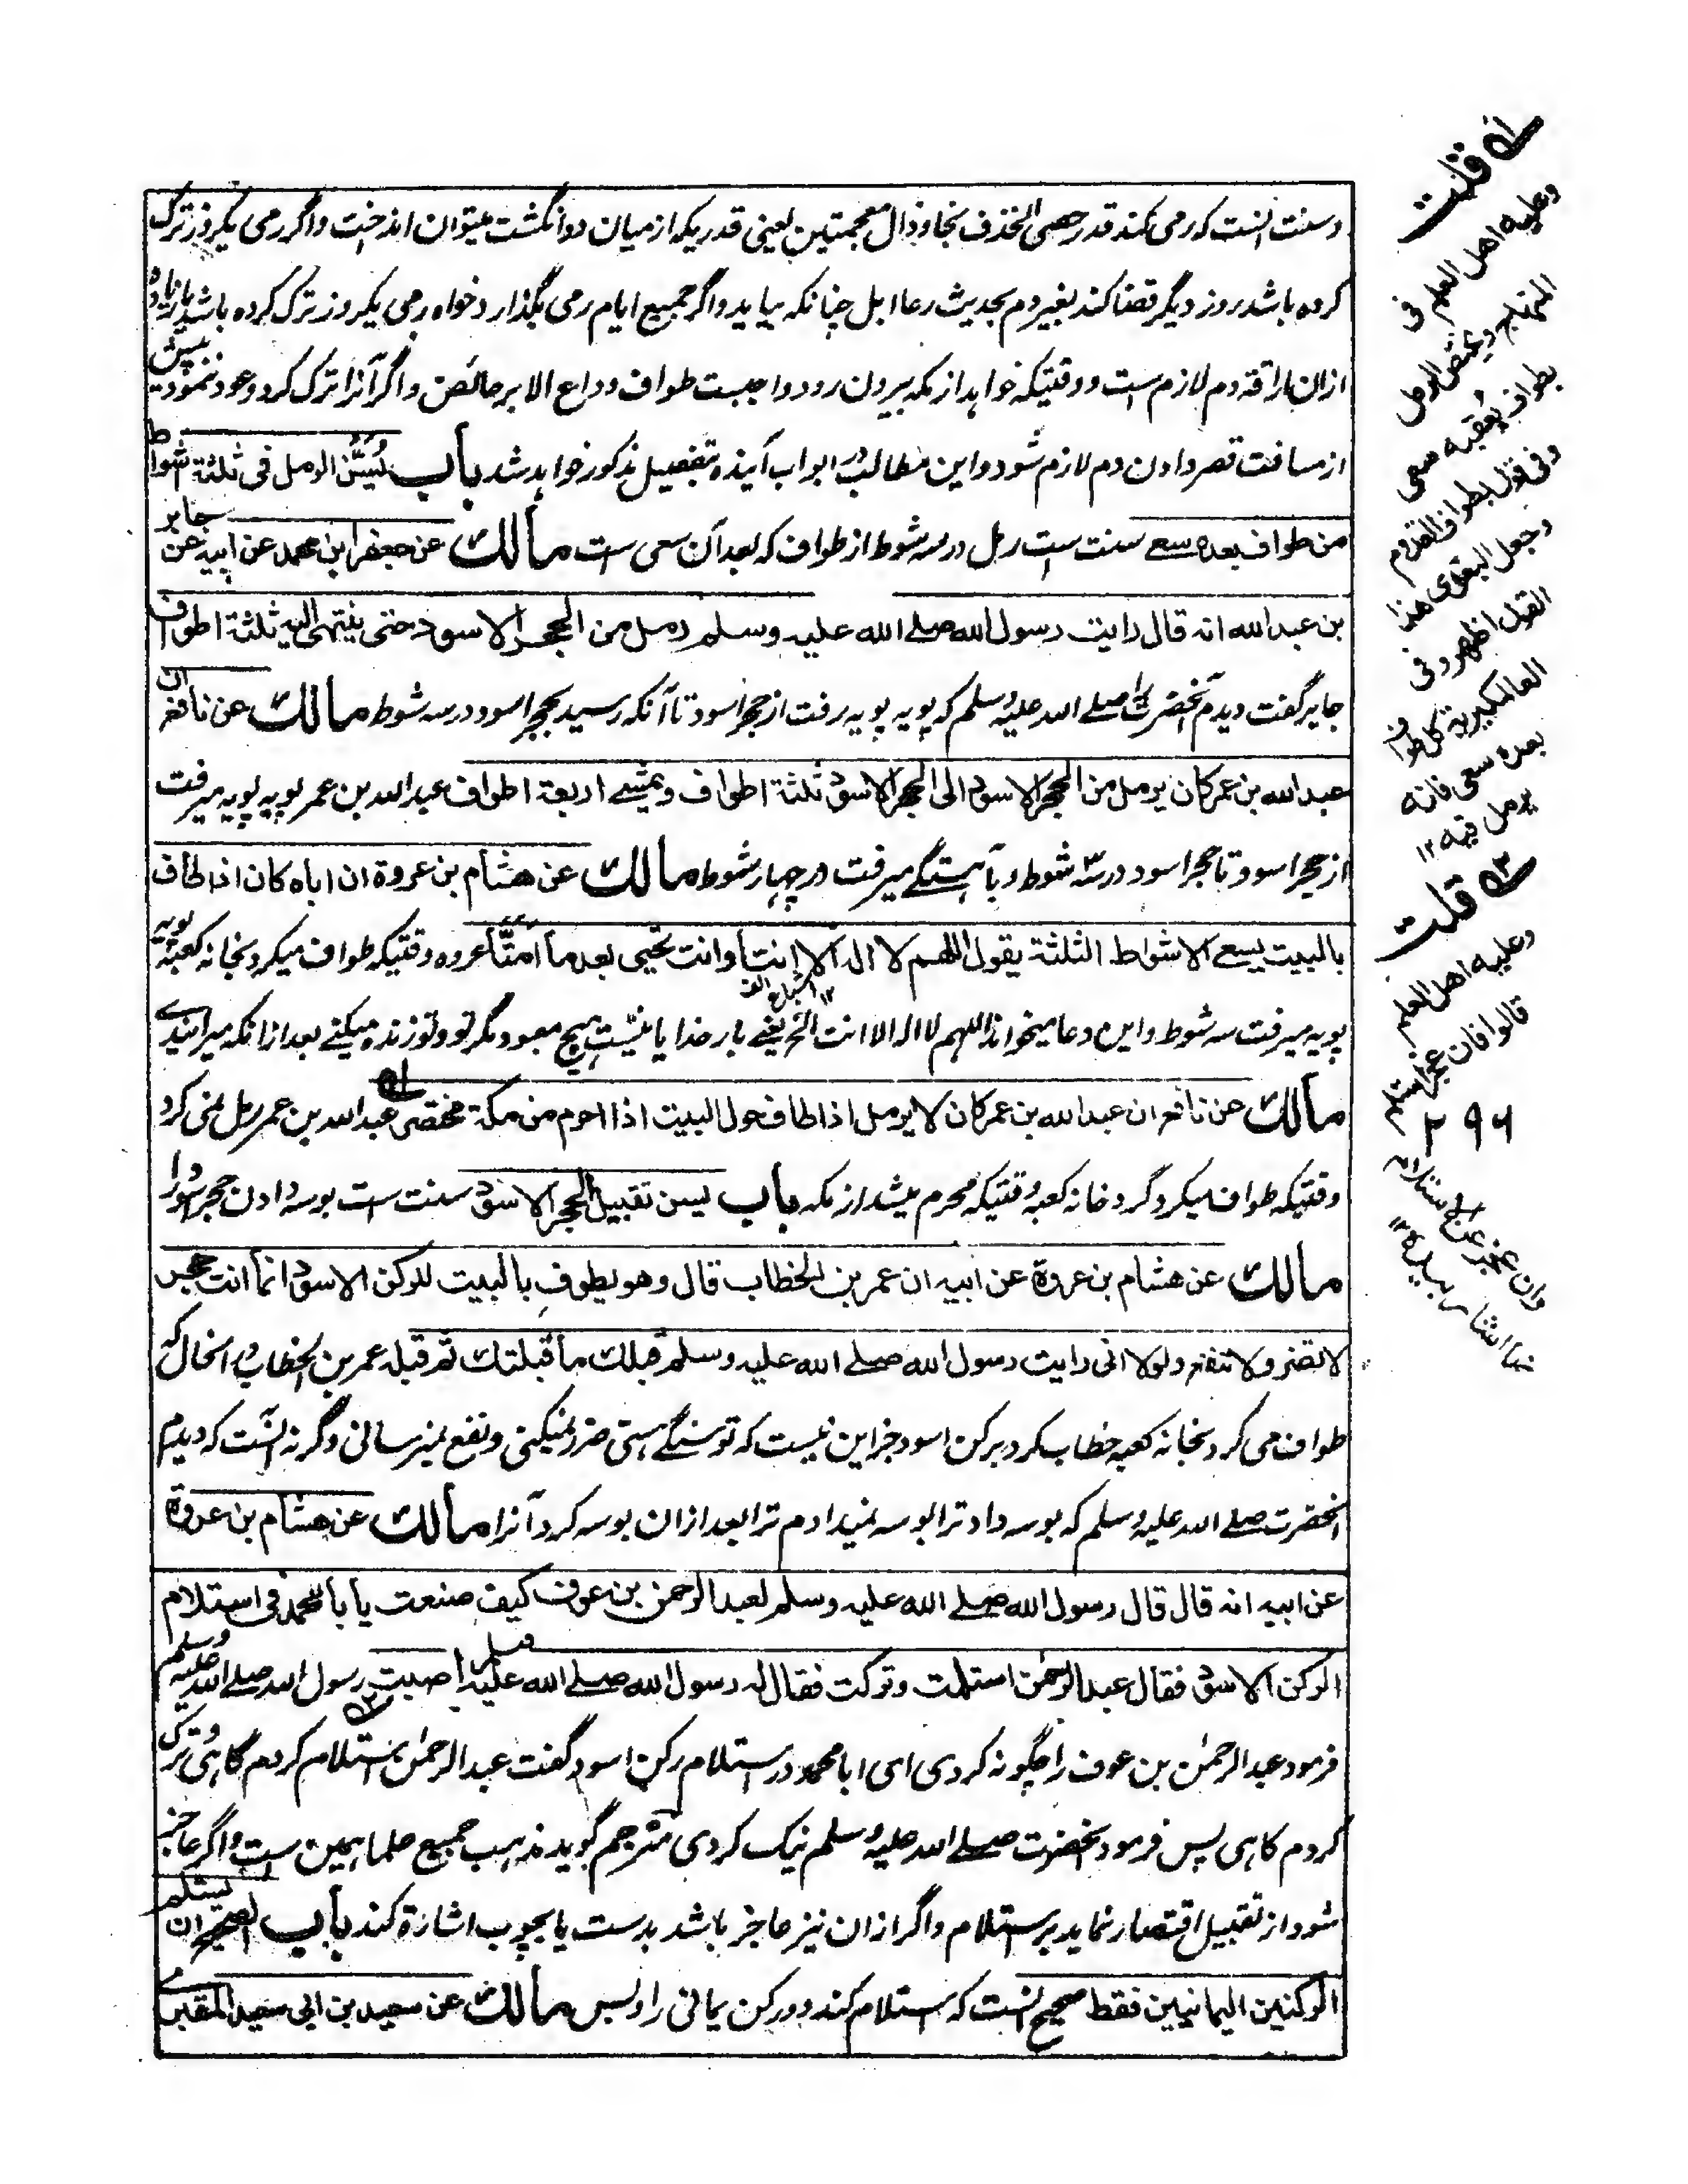 وسنت آنست که رمی کند قدر حصی الخذف بخا وذال معجمتین یعنی قدریکه از میان دو انگشت میتوان انداخت واگر رمی یکروز ترک
کرده باشد روز دیگر قضا کند بغیر دم بحدیث رعاء ابل چنانکه بیاید واگر جمیع ایام رمی بگذارد خواه رمی یکروز ترک کرده باشد یا زیاده
ازان اراقه دم لازم ست ووقتیکه خواهد از مکه بیرون رود واجبست طواف وداع الا بر حائض واگر آنرا ترک کرد وعود ننمود پیش
از مسافت قصر دادن دم لازم شود واین مطالب در ابواب آینده بتفصیل مذکور خواهد شد باب یُسَنُّ الرمل فی ثلثة اشواط
من طواف بعده سعی سنت ست رمل در سه شوط از طواف که بعد آن سعی ست مالك عن جعفر ابن محمد عن ابیه عن جابر
بن عبد الله انه قال رایت رسول الله صلے الله علیه وسلم رمل من الحجر الاسود حتی ینتهی الیه ثلثة اطواف
جابر گفت دیدم آنحضرت را صلے الله علیه وسلم که پویه پویه رفت از حجر اسود تا آنکه رسید بحجر اسود در سه شوط مالك عن نافع ان
عبد الله بن عمر کان یرمل من الحجر الاسود الی الحجر الاسود ثلثة اطواف ویمشے اربعة اطواف عبد الله بن عمر پویه پویه میرفت
از حجر اسود تا حجر اسود در سه شوط وبآهستگے میرفت در چهار شوط مالك عن هشام بن عروة ان اباه کان اذا طاف
بالبیت یسعے الاشواط الثلثة یقول اللهم لا اله الا انت وانت تحیی بعد ما امتّا عروه وقتیکه طواف میکرد بخانه کعبه پویه
۱۲ اشباع الف
پویه میرفت سه شوط واین دعا میخواند اللهم لا اله الا انت الخ یعنے بار خدایا نیست هیچ معبود مگر تو وتو زنده میکنے بعد ازانکه میرانیدے
مالك عن نافع ان عبد الله بن عمر کان لا یرمل اذا طاف حول البیت اذا احرم من مکة مختصر عبد الله بن عمر رمل نمی کرد
وقتیکه طواف میکرد گرد خانه کعبه وقتیکه محرم میشد از مکه باب یسن تقبیل الحجر الاسود سنت ست بوسه دادن حجر اسود را
مالك عن هشام بن عروة عن ابیه ان عمر بن الخطاب قال وهو یطوف بالبیت للرکن الاسود انما انت حجر
لا تضر ولا تنفع ولولا انی رایت رسول الله صلے الله علیه وسلم قبلك ما قبلتك ثم قبله عمر بن الخطاب در انحال که
طواف می کرد بخانه کعبه خطاب کرد برکن اسود جز این نیست که تو سنگے هستی ضرر نمیکنی ونفع نمیرسانی وگر نه آنست که دیدم
آنحضرت صلے الله علیه وسلم که بوسه داد ترا بوسه نمیدادم ترا بعد ازان بوسه کرد آنرا مالك عن هشام بن عروة
عن ابیه انه قال قال رسول الله صلے الله علیه وسلم لعبد الرحمن بن عوف کیف صنعت یا با محمد فی استلام
الرکن الاسود فقال عبد الرحمن استلمت وترکت فقال له رسول الله صلے الله علیه وسلم اصبت رسول الله صلے الله علیه وسلم
فرمود عبد الرحمن بن عوف را چگونه کردی ای ابا محمد در استلام رکن اسود گفت عبد الرحمن استلام کردم گاهی وترک
کردم گاهی پس فرمود آنحضرت صلے الله علیه وسلم نیک کردی مترجم گوید مذهب جمیع علما همین ست واگر عاجز
شود از تقبیل اقتصار نماید بر استلام واگر ازان نیز عاجز باشد بدست یا بچوب اشارة کند باب الصحیح ان یستلم
الرکنین الیمانیین فقط صحیح آنست که استلام کند دو رکن یمانی را وبس مالك عن سعید بن ابی سعید المقبری
۱ قلت
وعلیه اهل العلم فی
المنهاج ویختص الرمل
بطواف یُعقبه سعی
وفی قول بطواف القدوم
وجعل البغوی هذا
القول اظهر وفی
العالمکیریة کل طواف
بعده سعی فانه
یرمل فیه ۱۲
۲ قلت
وعلیه اهل العلم
قالوا فان عجز استلم
۲۹۶
وان عجز عن الاستلام
اشار بیده ۱۲